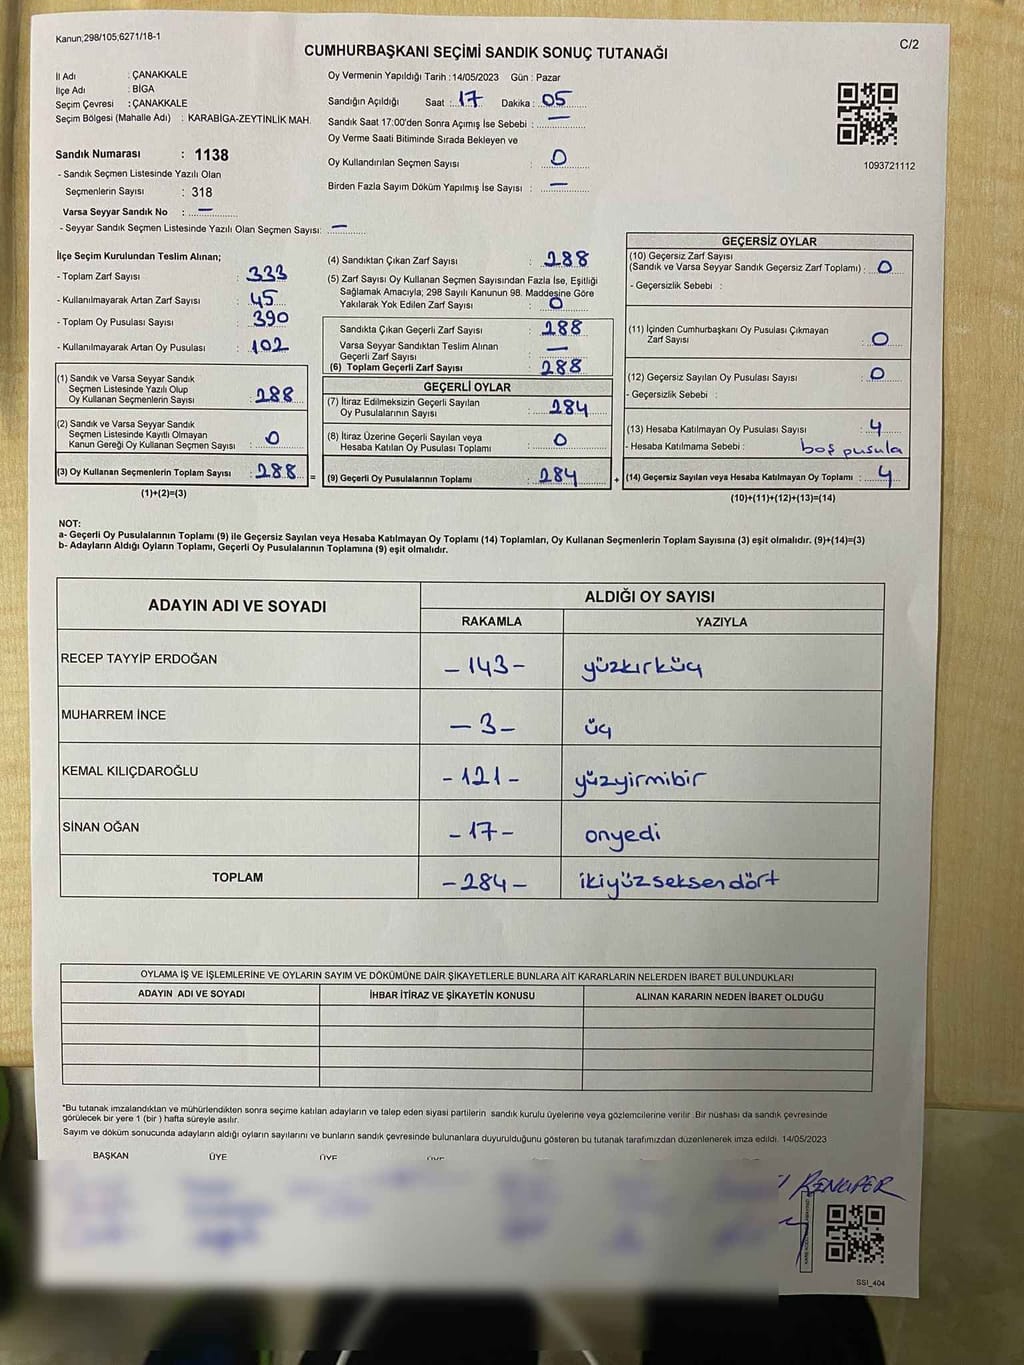 Kanun;298/105,6271/18-1
C/2
CUMHURBAŞKANI SEÇİMİ SANDIK SONUÇ TUTANAĞI
İl Adı : ÇANAKKALE
İlçe Adı : BİGA
Seçim Çevresi : ÇANAKKALE
Seçim Bölgesi (Mahalle Adı) : KARABİGA-ZEYTİNLİK MAH.
Sandık Numarası : 1138
- Sandık Seçmen Listesinde Yazılı Olan
Seçmenlerin Sayısı : 318
Varsa Seyyar Sandık No : —
- Seyyar Sandık Seçmen Listesinde Yazılı Olan Seçmen Sayısı: —
Oy Vermenin Yapıldığı Tarih : 14/05/2023 Gün : Pazar
Sandığın Açıldığı Saat : 17 Dakika : 05
Sandık Saat 17:00'den Sonra Açımış İse Sebebi : —
Oy Verme Saati Bitiminde Sırada Bekleyen ve
Oy Kullandırılan Seçmen Sayısı : 0
Birden Fazla Sayım Döküm Yapılmış İse Sayısı : —
1093721112
İlçe Seçim Kurulundan Teslim Alınan;
- Toplam Zarf Sayısı : 333
- Kullanılmayarak Artan Zarf Sayısı : 45
- Toplam Oy Pusulası Sayısı : 390
- Kullanılmayarak Artan Oy Pusulası : 102
(1) Sandık ve Varsa Seyyar Sandık
Seçmen Listesinde Yazılı Olup
Oy Kullanan Seçmenlerin Sayısı : 288
(2) Sandık ve Varsa Seyyar Sandık
Seçmen Listesinde Kayıtlı Olmayan
Kanun Gereği Oy Kullanan Seçmen Sayısı : 0
(3) Oy Kullanan Seçmenlerin Toplam Sayısı : 288 =
(1)+(2)=(3)
(4) Sandıktan Çıkan Zarf Sayısı : 288
(5) Zarf Sayısı Oy Kullanan Seçmen Sayısından Fazla İse, Eşitliği
Sağlamak Amacıyla; 298 Sayılı Kanunun 98. Maddesine Göre
Yakılarak Yok Edilen Zarf Sayısı : 0
Sandıkta Çıkan Geçerli Zarf Sayısı : 288
Varsa Seyyar Sandıktan Teslim Alınan
Geçerli Zarf Sayısı : —
(6) Toplam Geçerli Zarf Sayısı : 288
GEÇERLİ OYLAR
(7) İtiraz Edilmeksizin Geçerli Sayılan
Oy Pusulalarının Sayısı : 284
(8) İtiraz Üzerine Geçerli Sayılan veya
Hesaba Katılan Oy Pusulası Toplamı : 0
(9) Geçerli Oy Pusulalarının Toplamı : 284 +
GEÇERSİZ OYLAR
(10) Geçersiz Zarf Sayısı
(Sandık ve Varsa Seyyar Sandık Geçersiz Zarf Toplamı) : 0
- Geçersizlik Sebebi :
(11) İçinden Cumhurbaşkanı Oy Pusulası Çıkmayan
Zarf Sayısı : 0
(12) Geçersiz Sayılan Oy Pusulası Sayısı : 0
- Geçersizlik Sebebi :
(13) Hesaba Katılmayan Oy Pusulası Sayısı : 4
- Hesaba Katılmama Sebebi : boş pusula
(14) Geçersiz Sayılan veya Hesaba Katılmayan Oy Toplamı : 4
(10)+(11)+(12)+(13)=(14)
NOT:
a- Geçerli Oy Pusulalarının Toplamı (9) ile Geçersiz Sayılan veya Hesaba Katılmayan Oy Toplamı (14) Toplamları, Oy Kullanan Seçmenlerin Toplam Sayısına (3) eşit olmalıdır. (9)+(14)=(3)
b- Adayların Aldığı Oyların Toplamı, Geçerli Oy Pusulalarının Toplamına (9) eşit olmalıdır.
ADAYIN ADI VE SOYADI
ALDIĞI OY SAYISI
RAKAMLA YAZIYLA
RECEP TAYYİP ERDOĞAN -143- yüzkırküç
MUHARREM İNCE -3- üç
KEMAL KILIÇDAROĞLU -121- yüzyirmibir
SİNAN OĞAN -17- onyedi
TOPLAM -284- ikiyüzseksendört
OYLAMA İŞ VE İŞLEMLERİNE VE OYLARIN SAYIM VE DÖKÜMÜNE DAİR ŞİKAYETLERLE BUNLARA AİT KARARLARIN NELERDEN İBARET BULUNDUKLARI
ADAYIN ADI VE SOYADI İHBAR İTİRAZ VE ŞİKAYETİN KONUSU ALINAN KARARIN NEDEN İBARET OLDUĞU
*Bu tutanak imzalandıktan ve mühürlendikten sonra seçime katılan adayların ve talep eden siyasi partilerin sandık kurulu üyelerine veya gözlemcilerine verilir. Bir nüshası da sandık çevresinde
görülecek bir yere 1 (bir) hafta süreyle asılır.
Sayım ve döküm sonucunda adayların aldığı oyların sayılarını ve bunların sandık çevresinde bulunanlara duyurulduğunu gösteren bu tutanak tarafımızdan düzenlenerek imza edildi. 14/05/2023
BAŞKAN ÜYE ÜYE
SSI_404